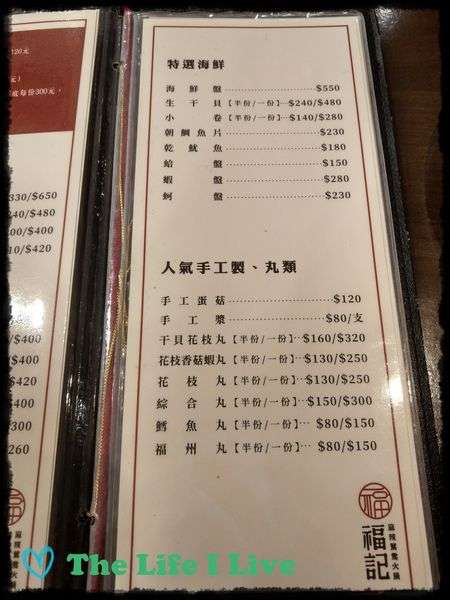 120元
元）
底每份300元，
330/$650
240/$480
400/$400
210/$420
/$400
/$400
/$420
/$400
/$300
/$260
特選海鮮
海鮮盤 $550
生干貝【半份/一份】 $240/$480
小卷【半份/一份】 $140/$280
朝鯛魚片 $230
乾魷魚 $180
蛤盤 $150
蝦盤 $280
蚵盤 $230
人氣手工製、丸類
手工蛋菇 $120
手工漿 $80/支
干貝花枝丸【半份/一份】 $160/$320
花枝香菇蝦丸【半份/一份】 $130/$250
花枝丸【半份/一份】 $130/$250
綜合丸【半份/一份】 $150/$300
鱈魚丸【半份/一份】 $80/$150
福州丸【半份/一份】 $80/$150
福
福記
麻辣鴛鴦火鍋
The Life I Live